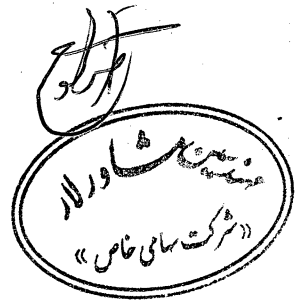 مهندسین مشاور لار
«شرکت سهامی خاص»